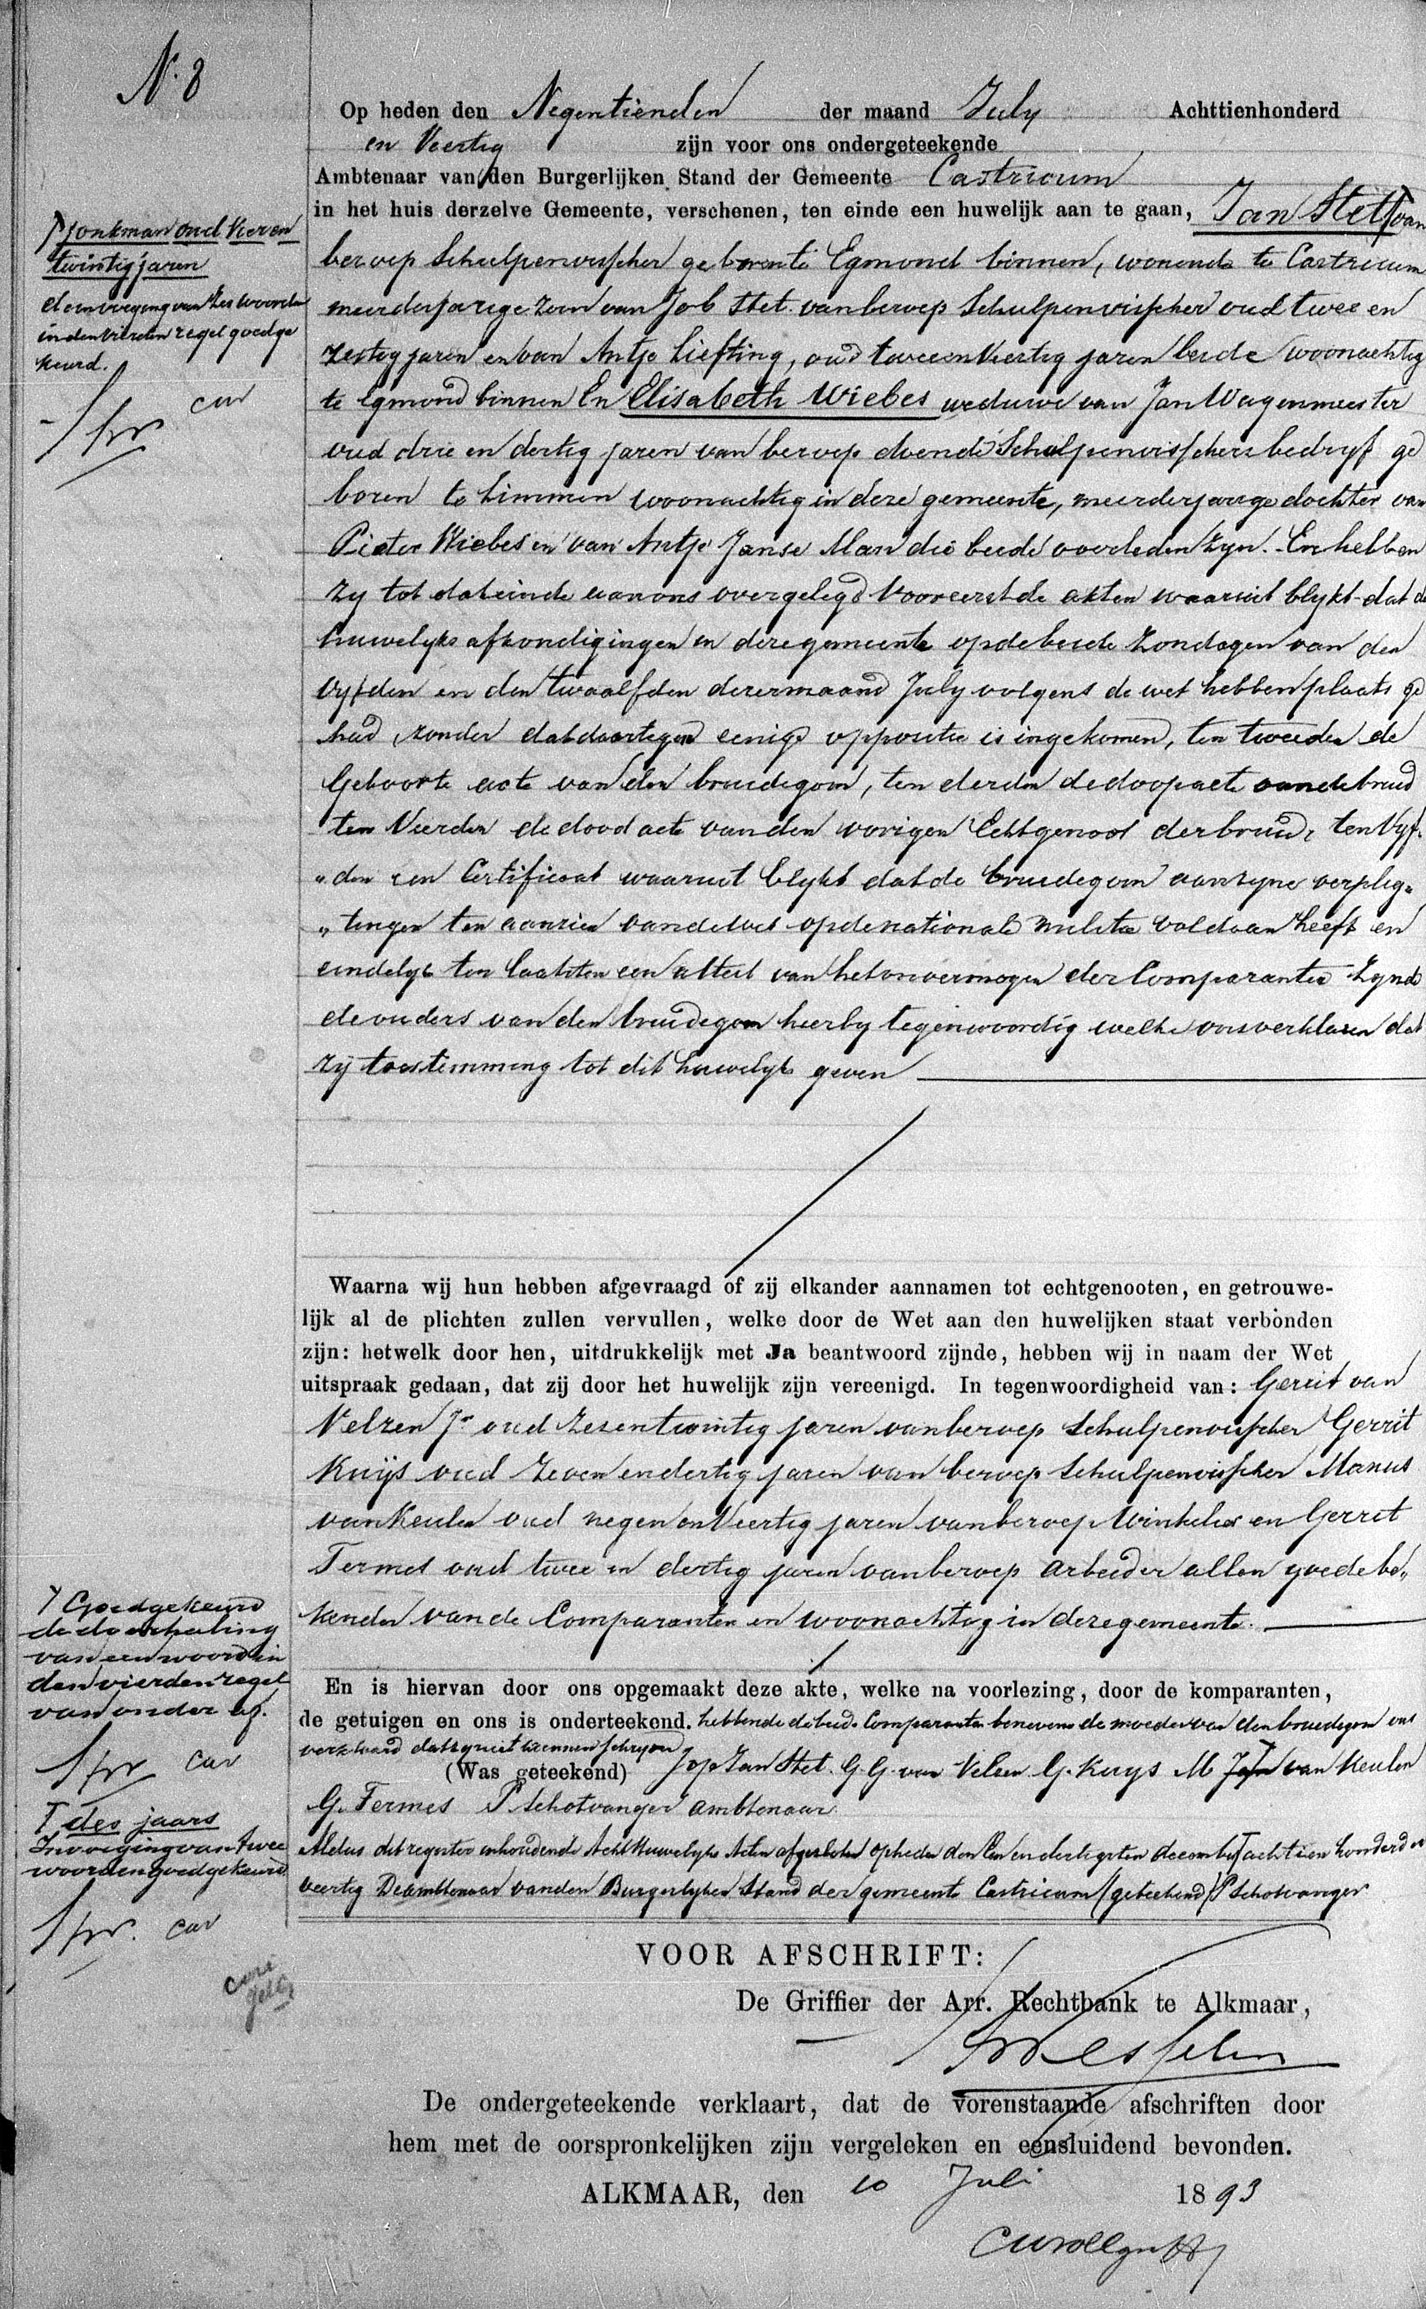 N. 8
Op heden den Negentienden der maand July Achttienhonderd
en Veertig zijn voor ons ondergeteekende
Ambtenaar van den Burgerlijken Stand der Gemeente Castricum
in het huis derzelve Gemeente, verschenen, ten einde een huwelijk aan te gaan, Jan Stet van
beroep Schulpenvisscher geborente Egmond binnen, wonende te Castricum
meerderjarige zoon van Job Stet van beroep Schulpenvisscher oud twee en
zestig jaren en van Antje Liefting, oud twee en Veertig jaren beide woonachtig
te Egmond binnen En Elisabeth Wiebes weduwe van Jan Wagenmeester
oud drie en dertig jaren van beroep doende Schulpenvisschers bedryf ge
boren te Limmen woonachtig in deze gemeente, meerderjarige dochter van
Pieter Wiebes en van Antje Janse Man die beide overleden zyn. En hebben
zy tot dat einde aan ons overgelegd Vooreerst de akten waaruit blykt dat de
huwelyks afkondigingen in deze gemeente op de beide Zondagen van den
vyfden en den twaalfden dezer maand July volgens de wet hebben plaats ge
had, zonder dat daartegen eenige oppositie is ingekomen, ten tweeden de
Geboorte acte van den bruidegom, ten derden de doopacte van de bruid
ten Vierden de dood acte van den vorigen Echtgenoot der bruid, ten Vyf„
„den een Certificaat waaruit blykt dat de bruidegom aan zyne verplig„
„tingen ten aanzien van de wet op de nationale militie voldaan heeft en
eindelyk ten laatsten een attest van het onvermogen der Comparanten Zynde
de ouders van den bruidegom hierby tegenwoordig welke ons verklaren dat
zij toestemming tot dit huwelyk geven
Waarna wij hun hebben afgevraagd of zij elkander aannamen tot echtgenooten, en getrouwe-
lijk al de plichten zullen vervullen, welke door de Wet aan den huwelijken staat verbonden
zijn: hetwelk door hen, uitdrukkelijk met Ja beantwoord zijnde, hebben wij in naam der Wet
uitspraak gedaan, dat zij door het huwelijk zijn vereenigd. In tegenwoordigheid van: Gerrit van
Velzen Jr oud zesentwintig jaren van beroep Schulpenvisscher Gerrit
Kuijs oud Zeven en dertig jaren van beroep Schulpenvisscher Manus
van Keulen oud negen en Veertig jaren van beroep Winkelier en Gerret
Termes oud twee en dertig jaren van beroep arbeider allen goede be„
kenden van de Comparanten en woonachtig in deze gemeente.
En is hiervan door ons opgemaakt deze akte, welke na voorlezing, door de komparanten,
de getuigen en ons is onderteekend. hebbende de beide Comparanten benevens de moeder van den bruidegom ons
verklaard dat zy niet kunnen schryven
(Was geteekend) Jop Jan Stet. G. G. van Velsen G. Kuys M Jan van Keulen
G. Termes P Schotvanger ambtenaar.
Aldus dit register inhoudende Acht Huwelyks Acten afgesloten op heden den Een en dertigsten december achttien honderd en
veertig De ambtenaar van den Burgerlyken Stand der gemeente Castricum (geteekend) P Schotvanger
VOOR AFSCHRIFT:
De Griffier der Arr. Rechtbank te Alkmaar,
De ondergeteekende verklaart, dat de vorenstaande afschriften door
hem met de oorspronkelijken zijn vergeleken en eensluidend bevonden.
ALKMAAR, den 10 Juli 1893
jonkman oud Vier en
twintig jaren
de invoeging van zes woorden
in den vierden regel goedge
keurd.
Goedgekeurd
de doorhaling
van een woord in
den vierden regel
van onder af.
des jaars
Invoeging van twee
woorden goedgekeurd